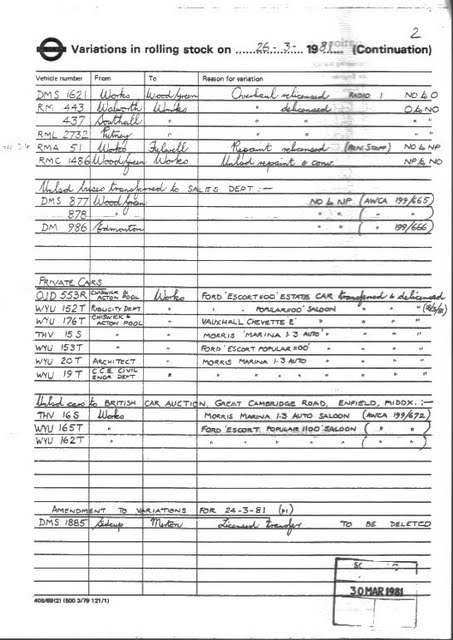 2
Variations in rolling stock on 26-3- 1981 (Continuation)
Vehicle number From To Reason for variation
DMS 1621 Works Wood Green Overhaul relicensed RADIO 1 NO to O
RM 443 Walworth Works " delicensed O to NO
437 Southall " " " "
RML 2732 Putney " " " "
RMA 51 Works Fulwell Repaint relicensed NO to NP
RMC 1486 Wood Green Works Unlsd repaint & conv. NP to NO
Unlsd buses transferred to SALES DEPT :—
DMS 877 Wood Green NO to NP (AWCA 199/665)
878 " " " ( " " )
DM 986 Edmonton " " ( " 199/666)
PRIVATE CARS
OJD 553R CHISWICK & ACTON POOL Works FORD 'ESCORT 1100' ESTATE CAR transferred & delicensed
WYU 152T PUBLICITY DEPT " " 'POPULAR 1100' SALOON " "
WYU 176T CHISWICK & ACTON POOL " VAUXHALL CHEVETTE E' " " "
THV 15S " " MORRIS 'MARINA 1·3 AUTO' " " "
WYU 153T " " FORD 'ESCORT POPULAR 1100' " " "
WYU 20T ARCHITECT " MORRIS MARINA 1·3 AUTO " " "
WYU 19T C.C.E. CIVIL ENGR DEPT " " " " " " "
Unlsd cars to BRITISH CAR AUCTION, GREAT CAMBRIDGE ROAD, ENFIELD, MIDDX. :—
THV 16S Works MORRIS MARINA 1·3 AUTO SALOON (AWCA 199/672)
WYU 165T " FORD 'ESCORT POPULAR 1100' SALOON ( " " )
WYU 162T " " " " " " ( " " )
AMENDMENT TO VARIATIONS FOR 24-3-81 (p1)
DMS 1885 Sidcup Merton Licensed transfer TO BE DELETED
30 MAR 1981